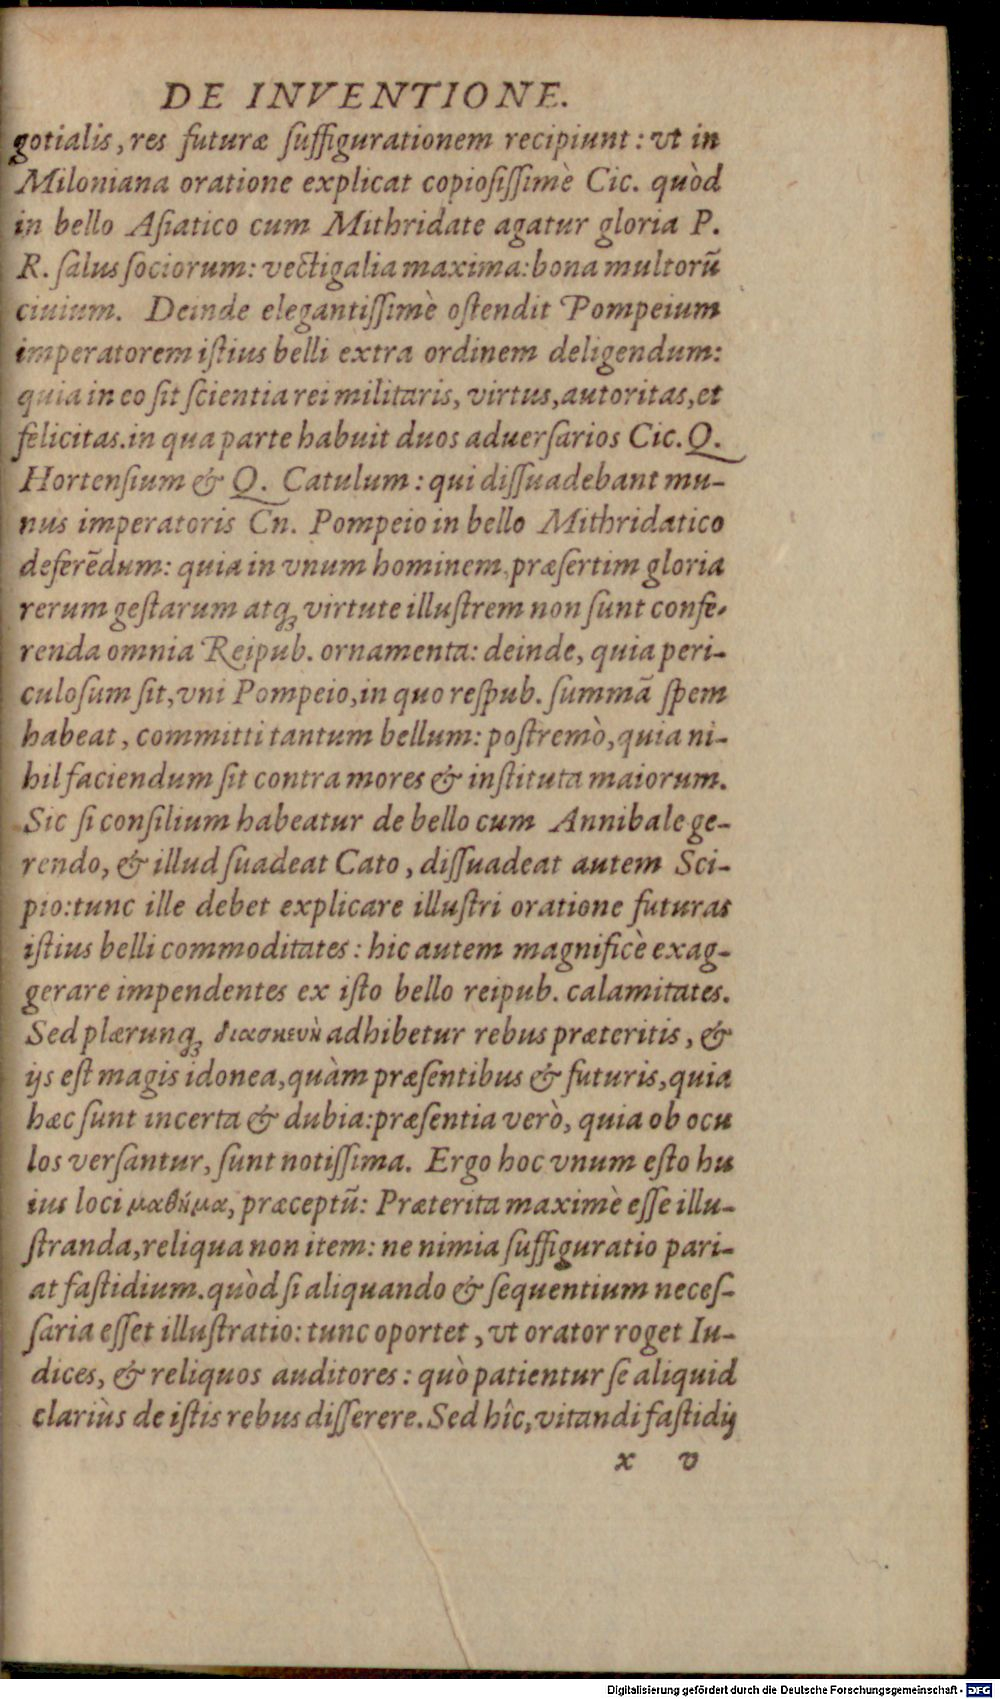 DE INVENTIONE.
gotialis, res futuræ ſuffigurationem recipiunt: vt in
Miloniana oratione explicat copioſiſſimè Cic. quòd
in bello Aſiatico cum Mithridate agatur gloria P.
R. ſalus ſociorum: vectigalia maxima: bona multorū
ciuium. Deinde elegantiſſimè oſtendit Pompeium
imperatorem iſtius belli extra ordinem deligendum:
quia in eo ſit ſcientia rei militaris, virtus, autoritas, et
felicitas. in qua parte habuit duos aduerſarios Cic. Q.
Hortenſium & Q. Catulum: qui diſſuadebant mu-
nus imperatoris Cn. Pompeio in bello Mithridatico
deferēdum: quia in vnum hominem, præſertim gloria
rerum geſtarum atqꝫ virtute illuſtrem non ſunt confe-
renda omnia Reipub. ornamenta: deinde, quia peri-
culoſum ſit, vni Pompeio, in quo reſpub. ſummā ſpem
habeat, committi tantum bellum: poſtremò, quia ni-
hil faciendum ſit contra mores & inſtituta maiorum.
Sic ſi conſilium habeatur de bello cum Annibale ge-
rendo, & illud ſuadeat Cato, diſſuadeat autem Sci-
pio: tunc ille debet explicare illuſtri oratione futuras
iſtius belli commoditates: hic autem magnificè exag-
gerare impendentes ex iſto bello reipub. calamitates.
Sed plærunqꝫ διασκευὴ adhibetur rebus præteritis, &
ijs eſt magis idonea, quàm præſentibus & futuris, quia
hæc ſunt incerta & dubia: præſentia verò, quia ob ocu
los verſantur, ſunt notiſſima. Ergo hoc vnum eſto hu
ius loci μαθήμα, præceptū: Præterita maximè eſſe illu-
ſtranda, reliqua non item: ne nimia ſuffiguratio pari-
at faſtidium. quòd ſi aliquando & ſequentium neceſ-
ſaria eſſet illuſtratio: tunc oportet, vt orator roget Iu-
dices, & reliquos auditores: quò patientur ſe aliquid
clariùs de iſtis rebus diſſerere. Sed hîc, vitandi faſtidij
x v
Digitalisierung gefördert durch die Deutsche Forschungsgemeinschaft - DFG